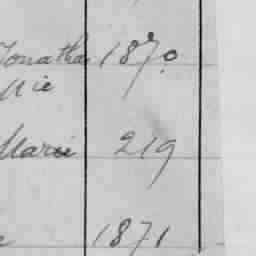 Jonathan 1870
Marie 219
1871